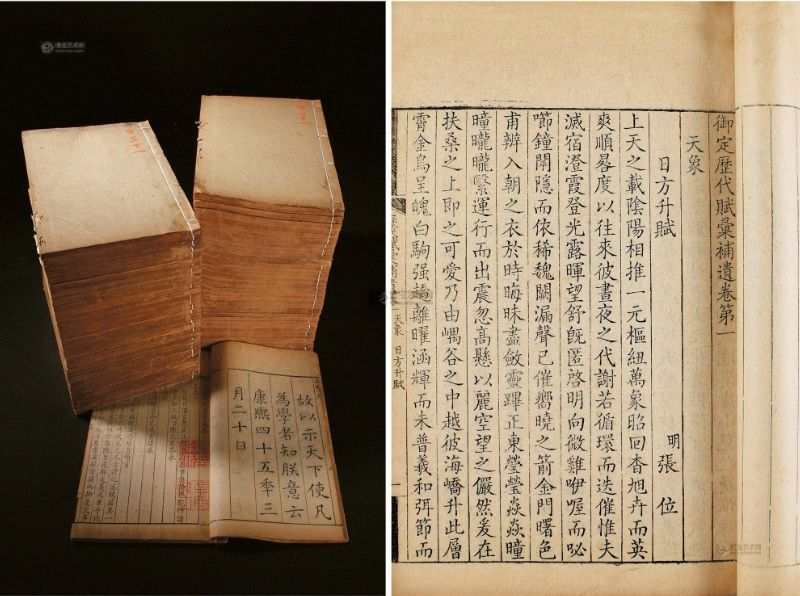 故以示天下使凡
為學者知朕意云
康熙四十五年三
月二十日
御定歴代賦彙補遺卷第一
天象
日方升賦
明張位
上天之載陰陽相推一元樞紐萬象昭回杳旭卉而英
爽順晷度以往來彼晝夜之代謝若循環而迭催惟夫
滅宿澄霞登光露暉望舒既匿啓明向微雞咿喔而
唿鐘閘隱而依稀魏闕漏聲已催嚮曉之箭金門曙色
甫辨入朝之衣於時晦昧盡斂靈躍正東瑩瑩焱焱曈
曈曨曨繄運行而出震忽高懸以麗空望之儼然爰在
扶桑之上即之可愛乃由嵎谷之中越彼海嶠升此層
霄金烏呈魄白駒强離曜涵輝而未普羲和弭節而
天象
日方升賦